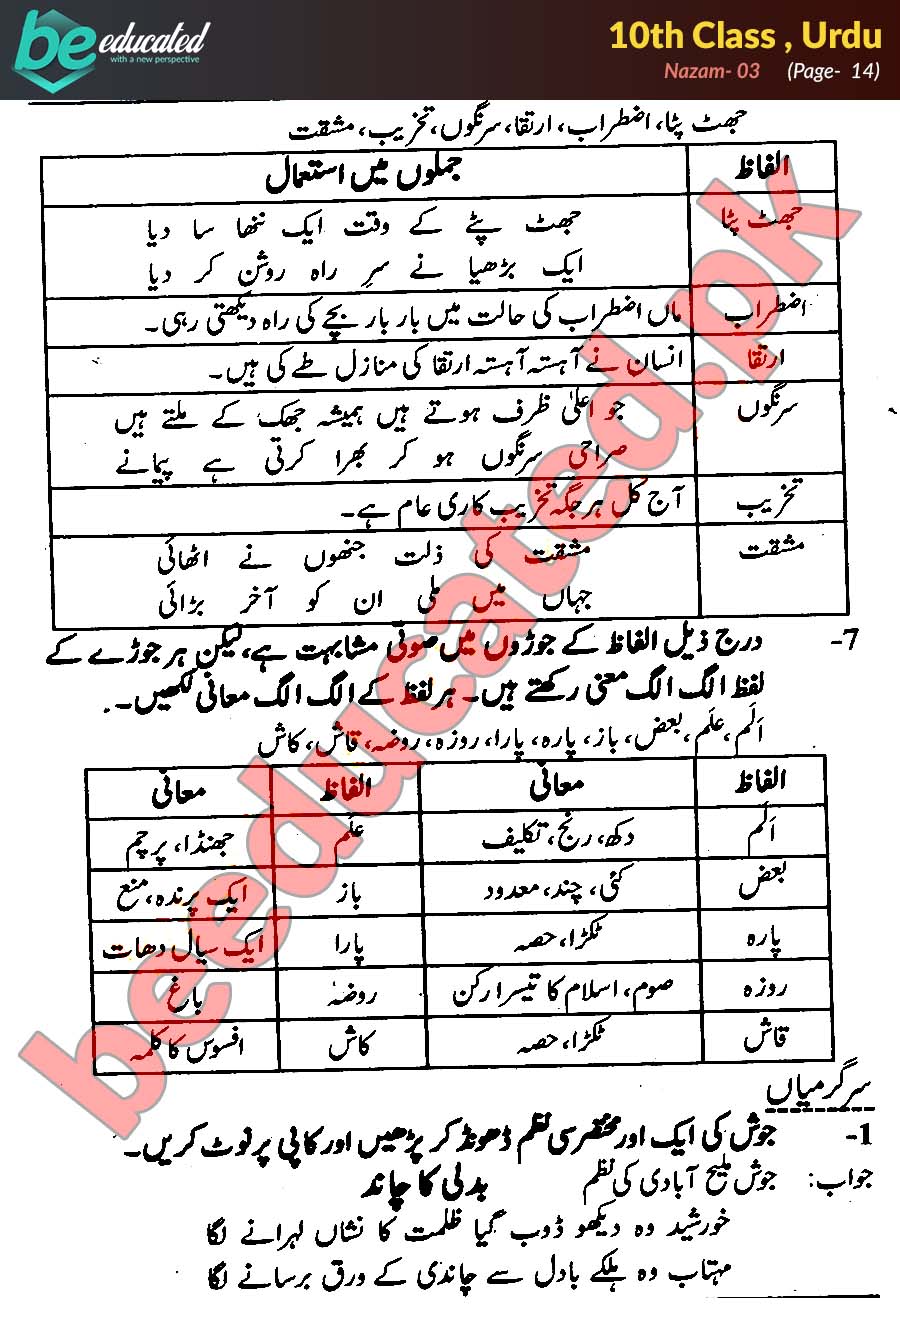 be educated
with a new perspective
10th Class , Urdu
Nazam- 03 (Page- 14)
جھٹ پٹا، اضطراب، ارتقا، سرنگوں، تخریب، مشقت
الفاظ جملوں میں استعمال
جھٹ پٹا جھٹ پٹے کے وقت ایک ننھا سا دیا
ایک بڑھیا نے سرِ راہ روشن کر دیا
اضطراب ماں اضطراب کی حالت میں بار بار بچے کی راہ دیکھتی رہی۔
ارتقا انسان نے آہستہ آہستہ ارتقا کی منازل طے کی ہیں۔
سرنگوں جو اعلیٰ ظرف ہوتے ہیں ہمیشہ جھک کے ملتے ہیں
صراحی سرنگوں ہو کر بھرا کرتی ہے پیمانے
تخریب آج کل ہر جگہ تخریب کاری عام ہے۔
مشقت مشقت کی ذلت جنھوں نے اٹھائی
جہاں میں ملی ان کو آخر بڑائی
7- درج ذیل الفاظ کے جوڑوں میں صوتی مشابہت ہے، لیکن ہر جوڑے کے
لفظ الگ الگ معنی رکھتے ہیں۔ ہر لفظ کے الگ الگ معانی لکھیں۔
اَلَم، عَلَم، بعض، باز، پارہ، پارا، روزہ، روضہ، قاش، کاش
الفاظ معانی الفاظ معانی
اَلَم دکھ، رنج، تکلیف عَلَم جھنڈا، پرچم
بعض کئی، چند، معدود باز ایک پرندہ، منع
پارہ ٹکڑا، حصہ پارا ایک سیال دھات
روزہ صوم، اسلام کا تیسرا رکن روضہ باغ
قاش ٹکڑا، حصہ کاش افسوس کا کلمہ
سرگرمیاں
1- جوش کی ایک اور مختصر سی نظم ڈھونڈ کر پڑھیں اور کاپی پر نوٹ کریں۔
جواب: جوش ملیح آبادی کی نظم بدلی کا چاند
خورشید وہ دیکھو ڈوب گیا ظلمت کا نشاں لہرانے لگا
مہتاب وہ ہلکے بادل سے چاندی کے ورق برسانے لگا
beeducated.pk